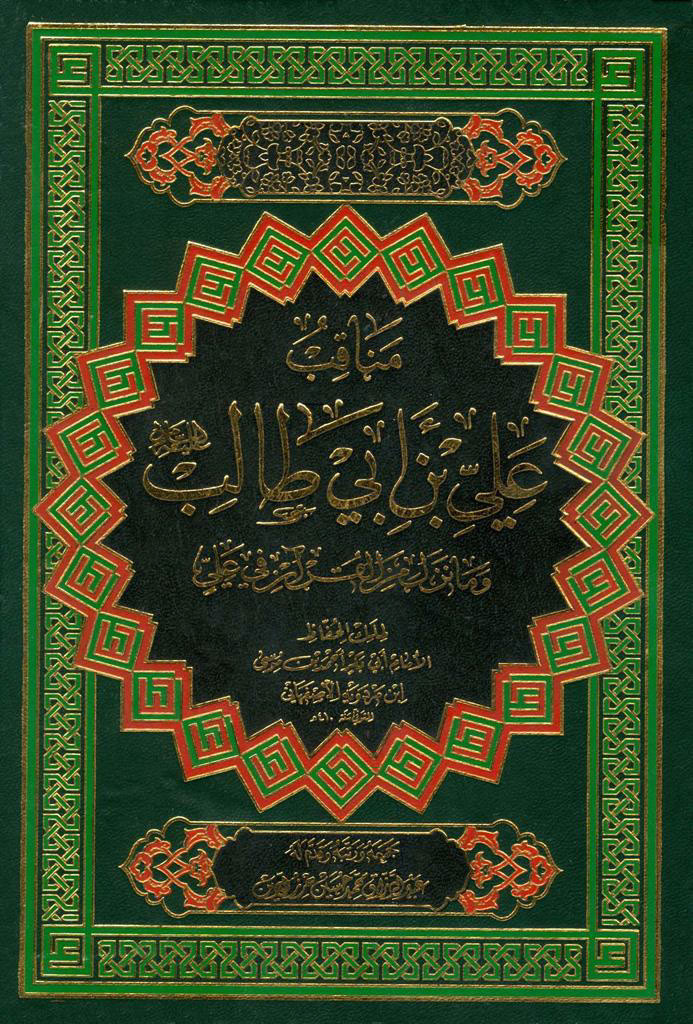 مَنَاقِبُ
عَلِيِّ بْنِ أَبِي طَالِبٍ عليه السلام
وَمَا نَزَلَ مِنَ القُرْآنِ فِي عَلِيٍّ
لملك الحفاظ
الإمام أبي بكر أحمد بن موسى
ابن مردويه الأصفهاني
المتوفى سنة ٤١٠هـ
جمعه ورتبه وقدم له
عبدالرزاق محمد حسين حرزالدين